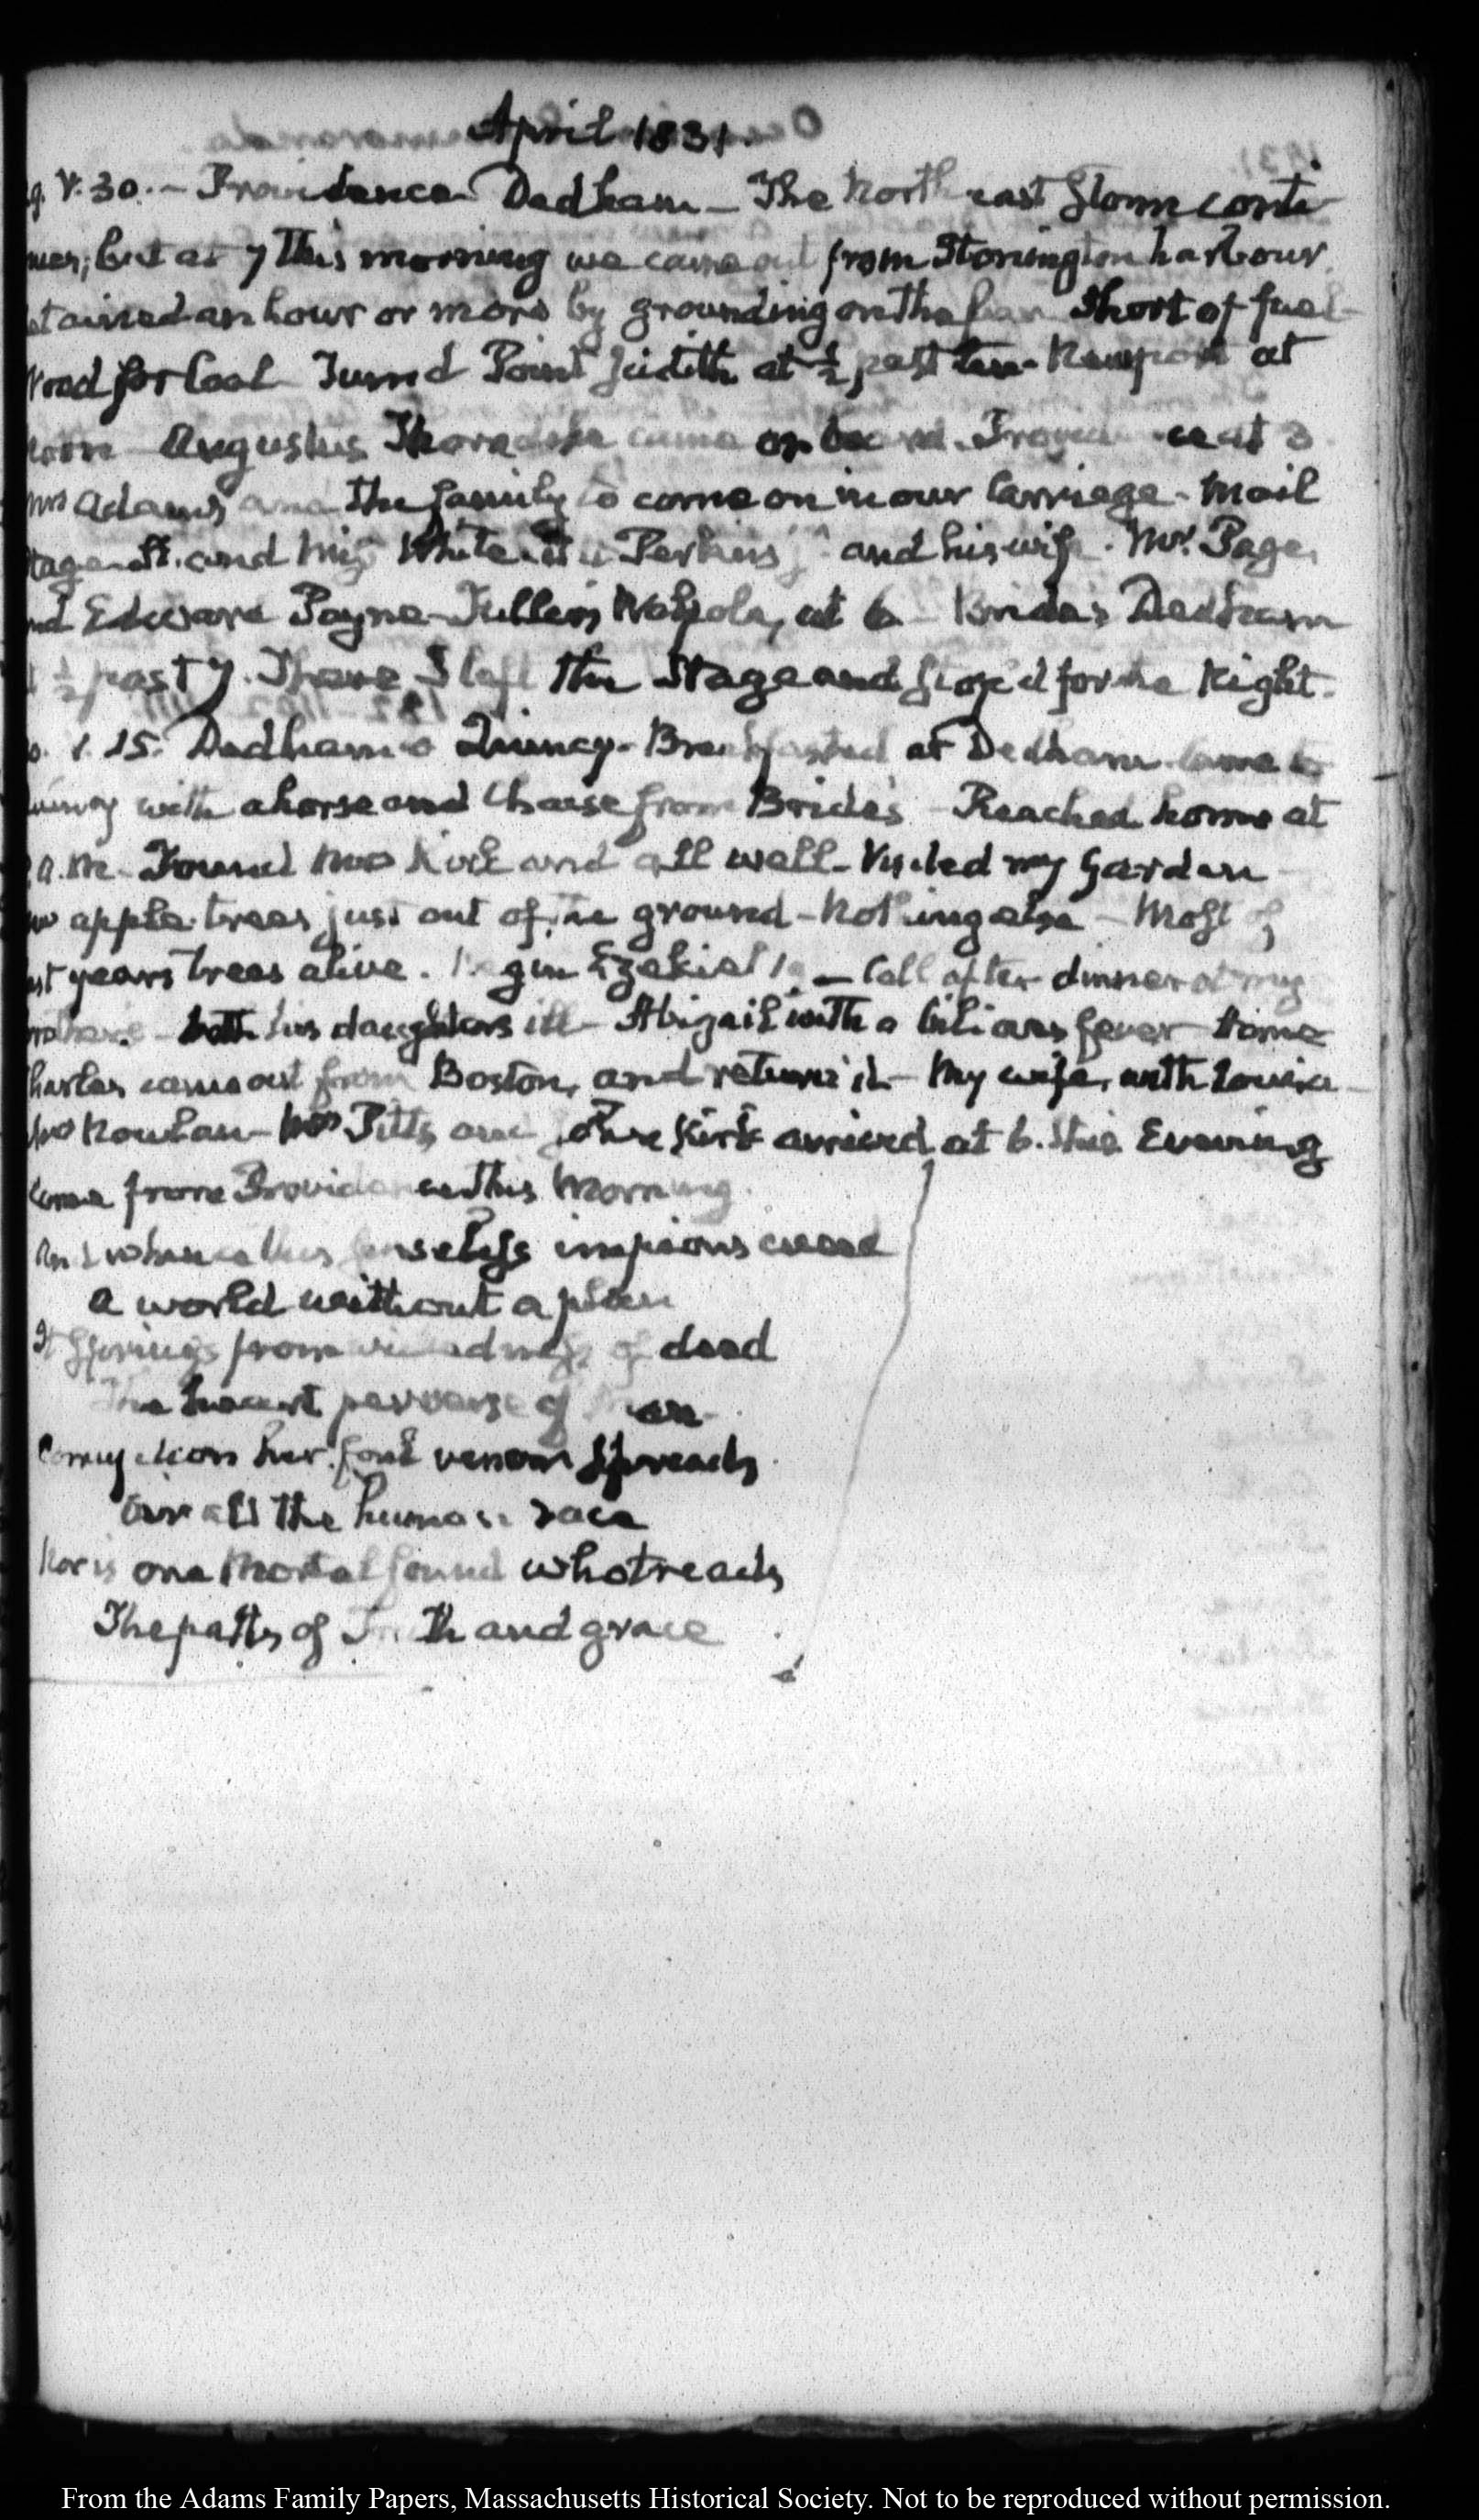 April 1831.
V. 30. — Providence Dedham — The North east Storm conti-
but at 7 this morning we came out from Stonington harbour.
tained an hour or more by grounding on the bar. Short of fuel—
for Coal. Turned Point Judith at ½ past ten — Newport at
noon — Augustus Thorndike came on board. Providence at 3
Mrs Adams and the family to come on in our Carriage — Mail
and Miss White Perkins jr and his wife. Mr. Page,
Edward Payne — Fuller's Walpole, at 6 — Bride's Dedham
½ past 7. There I left the Stage and stop'd for the Night.
1. 15. Dedham to Quincy — Breakfasted at Dedham. Came to
with a horse and Chaise from Bride's — Reached home at
a.m. Found Mrs Kirk and all well — Visited my Garden —
apple trees just out of the ground — Nothing else — Most of
years trees alive. Began Ezekiel — Call after dinner at my
both his daughters ill — Abigail with a bilious fever — Home
came out from Boston, and return'd — My wife, with Louisa
Nowlan — Mrs Pitts and John Kirk arrived at 6. this Evening
from Providence this Morning.
And whence this senseless impious creed
A world without a plan
It Springs from wickedness of deed
The perverse of Man.
Corruption her foul venom Spreads
O'er all the human race
Nor is one Mortal found who treads
The paths of Truth and grace
From the Adams Family Papers, Massachusetts Historical Society. Not to be reproduced without permission.